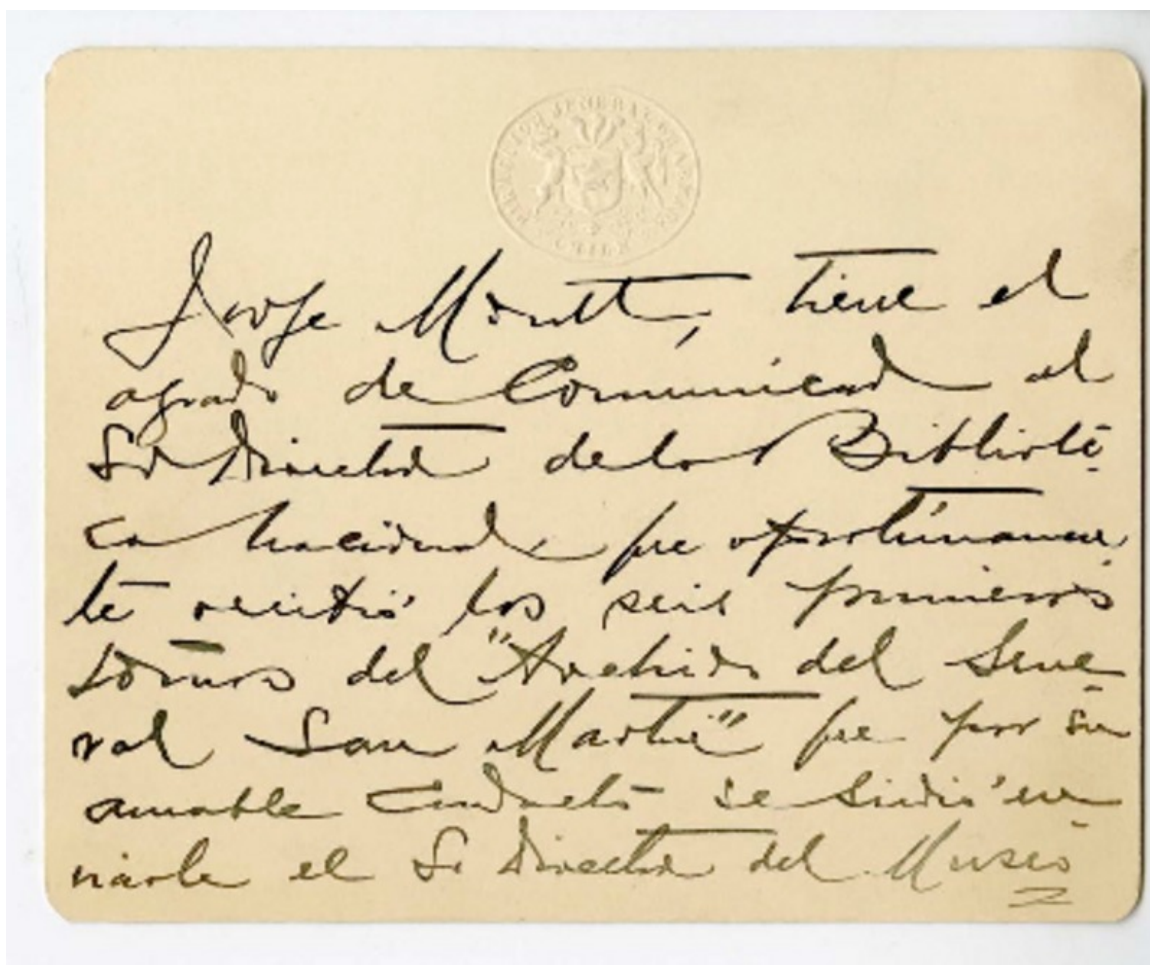 DIRECCION JENERAL DE LA ARMADA
CHILE
Jorje Montt, tiene el
agrado de Comunicar al
Sr Director de la Bibliote
ca Nacional, que oportunamen
te recibió los seis primeros
tomos del "Archivo del Jene
ral San Martin" que por su
amable conducto se sirvió en
viarle el Sr Director del Museo